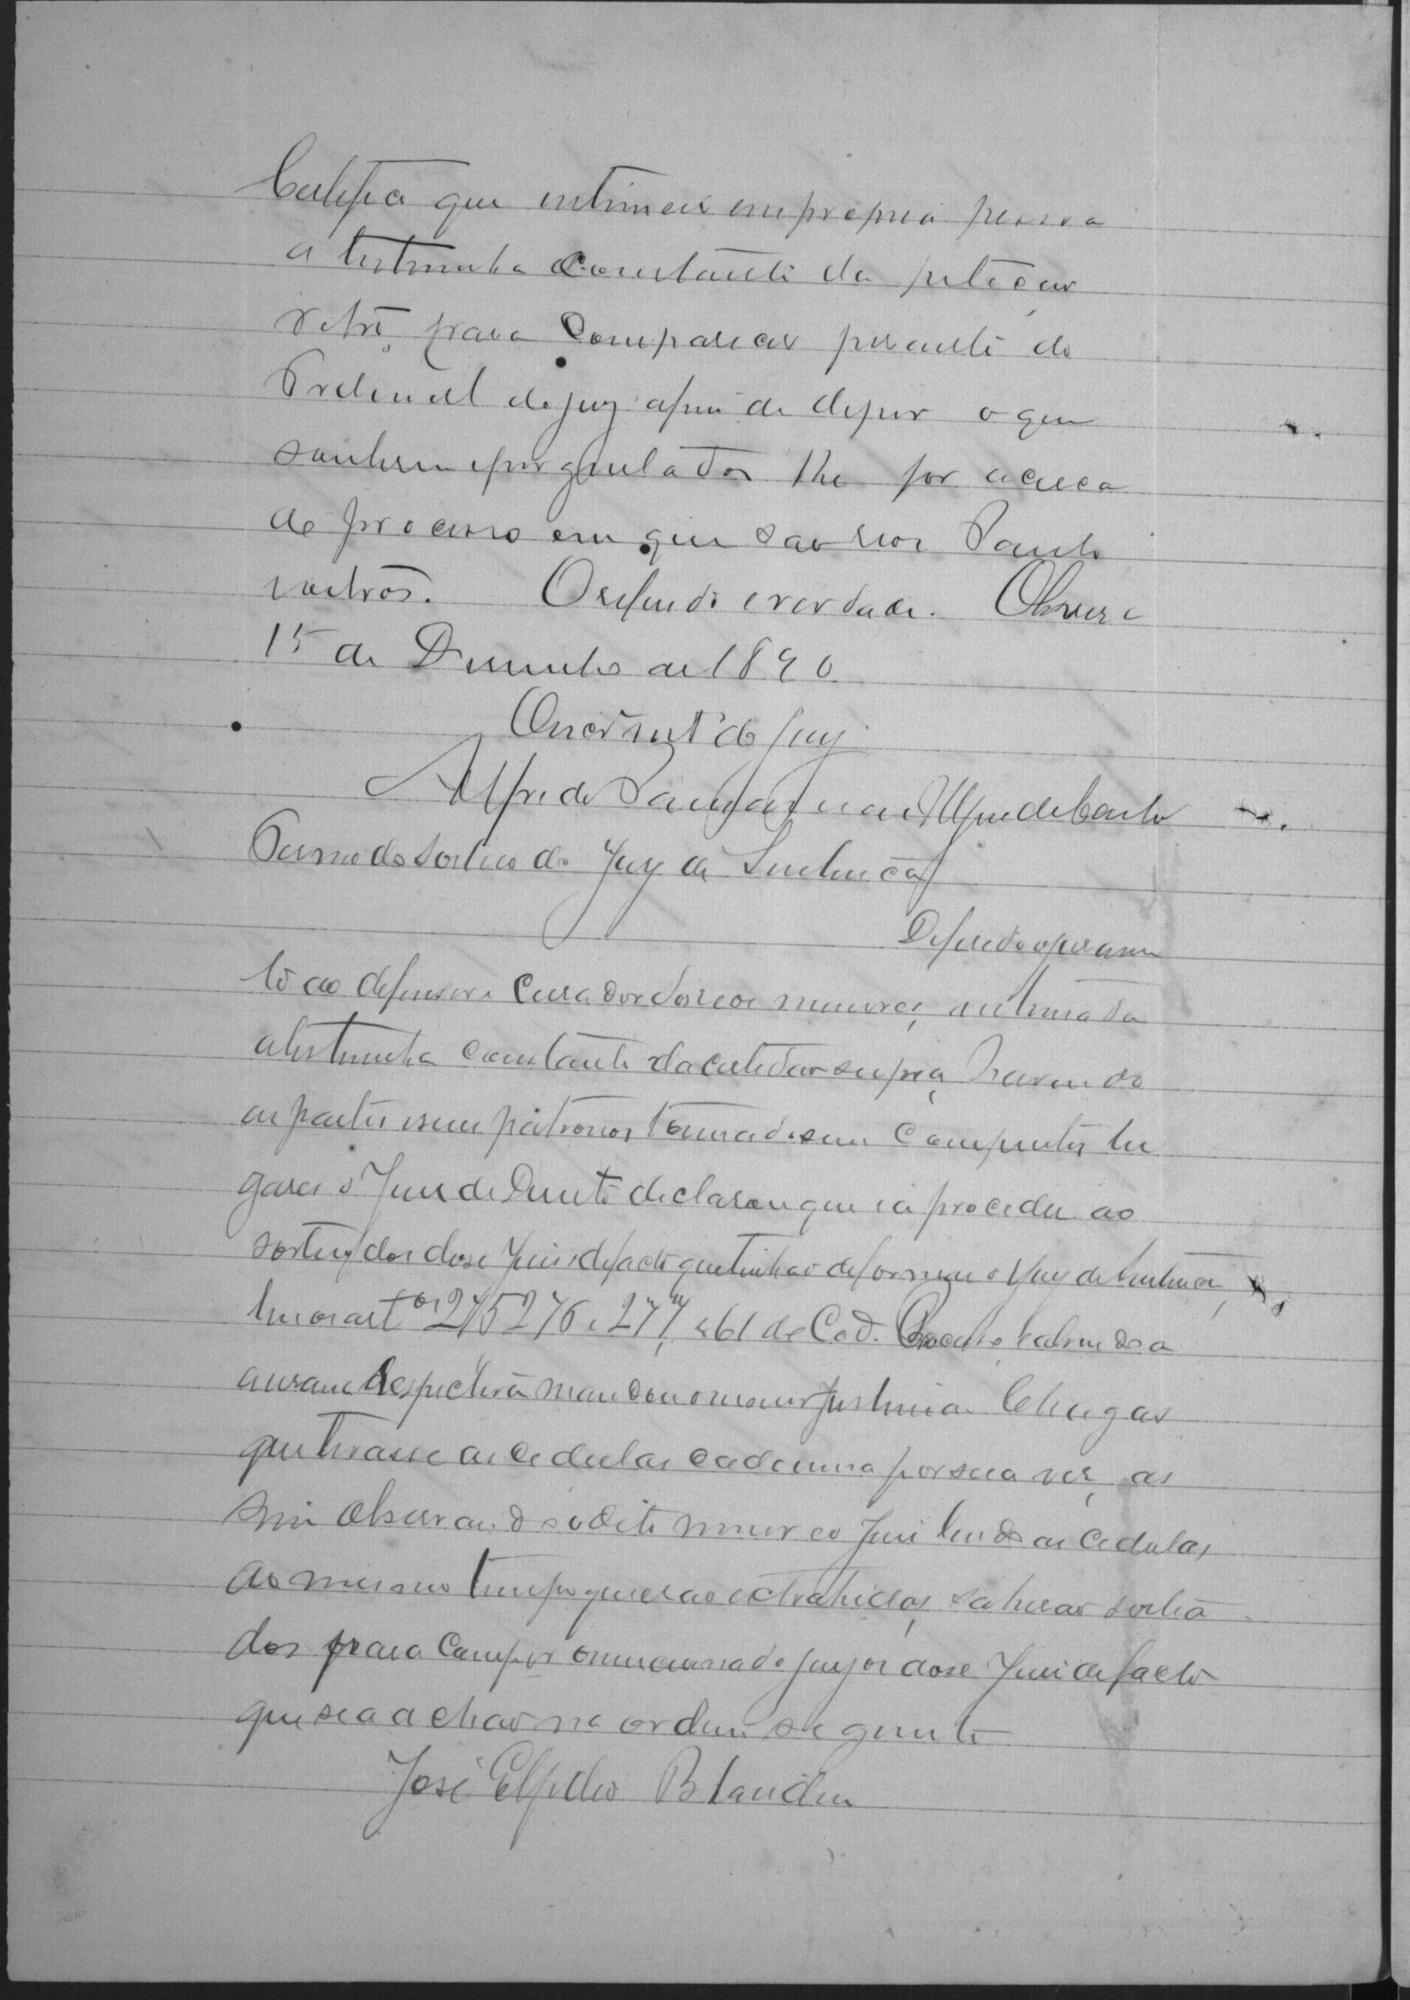 Certifico que intimei em propria pessoa
a testemunha constante da petição
retro, para comparecer perante o
Tribunal do jury afim de depor o que
souber e perguntado lhe for acerca
do processo em que são reos Paulo
e outros. O referido é verdade.
15 de Dezembro de 1890
O servente do Jury
Alfredo
Termo do sorteio do Jury de Sentença
Deferido o juramen
to ao defensor e curador dos reos menores, intimada
a testemunha constante da certidão supra, havendo
as partes e seus patronos tomado seus competentes lu
gares o Juiz de Direito declarou que ia proceder ao
sorteio dos dose Juises de facto que tinhão de formar o Jury de Sentença,
leu os artos 275 276 e 277, e 61 do Cod. Processo e abrindo a
a urna respectiva mandou o menor Chagas
que tirasse as cedulas cada uma por sua vez, as
sim observando o dito menor e o Juiz lendo as cedulas
ao mesmo tempo que erão extrahidas, sahirão sortea
dos para compor o mencionado jury os dose Juises de facto
que se achão na ordem seguinte
José Elpidio Blandin